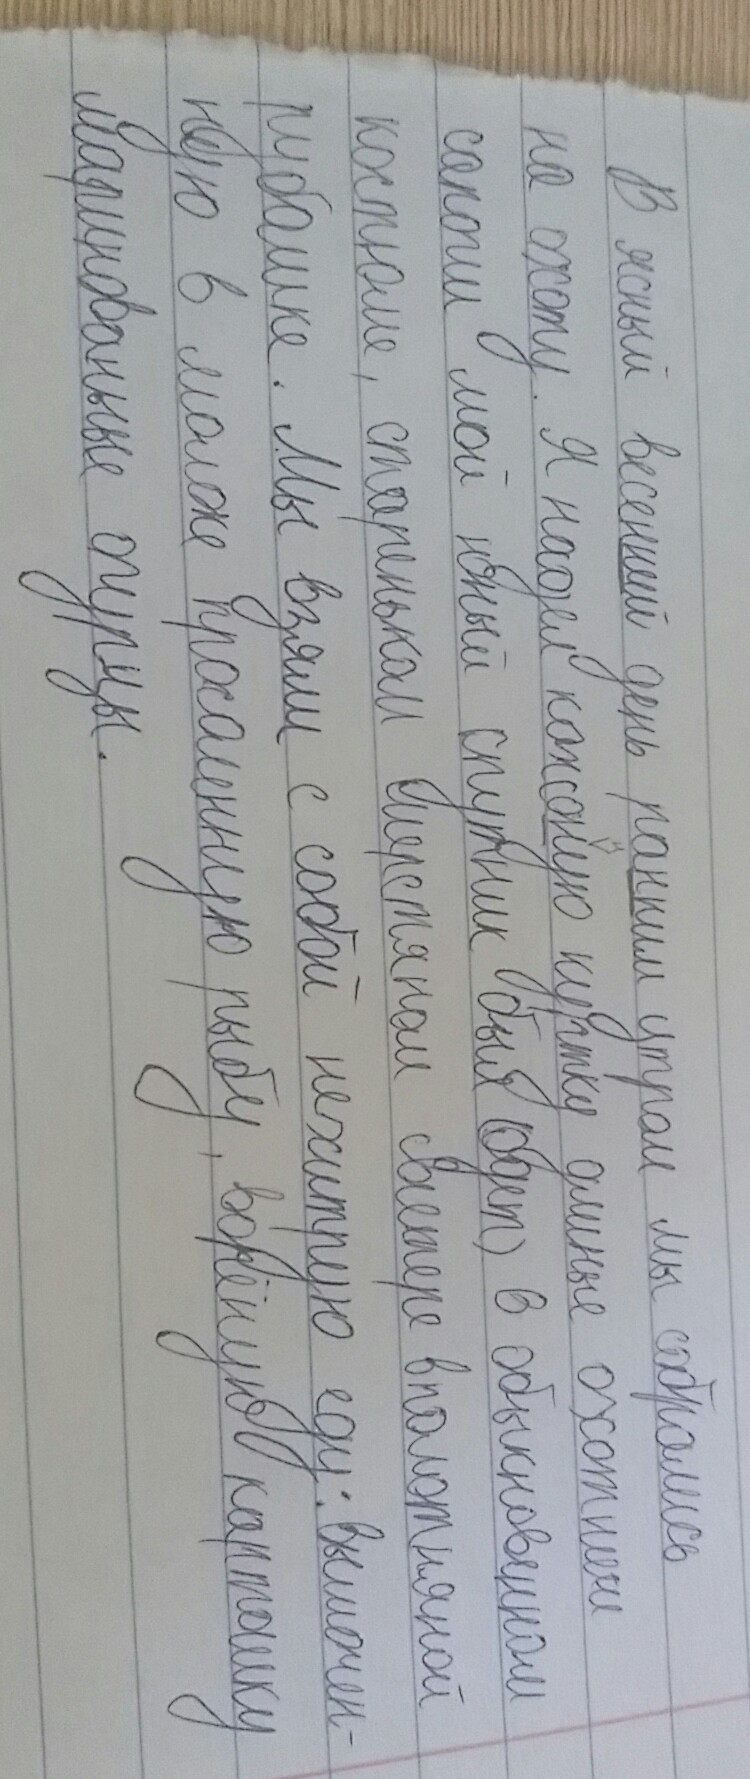 В ясный весенний день ранним утром мы собрались
на охоту. Я надел кожаную куртку длиные охотничи
сапоги мой юный спутник был (одет) в обыкновенном
костюме, стареньком шерстяном свитере в полотняной
рубашке. Мы взяли с собой нехитрую еду: вымочен-
ную в молоке просаленную рыбу, варёную картошку
маринованные огурцы.